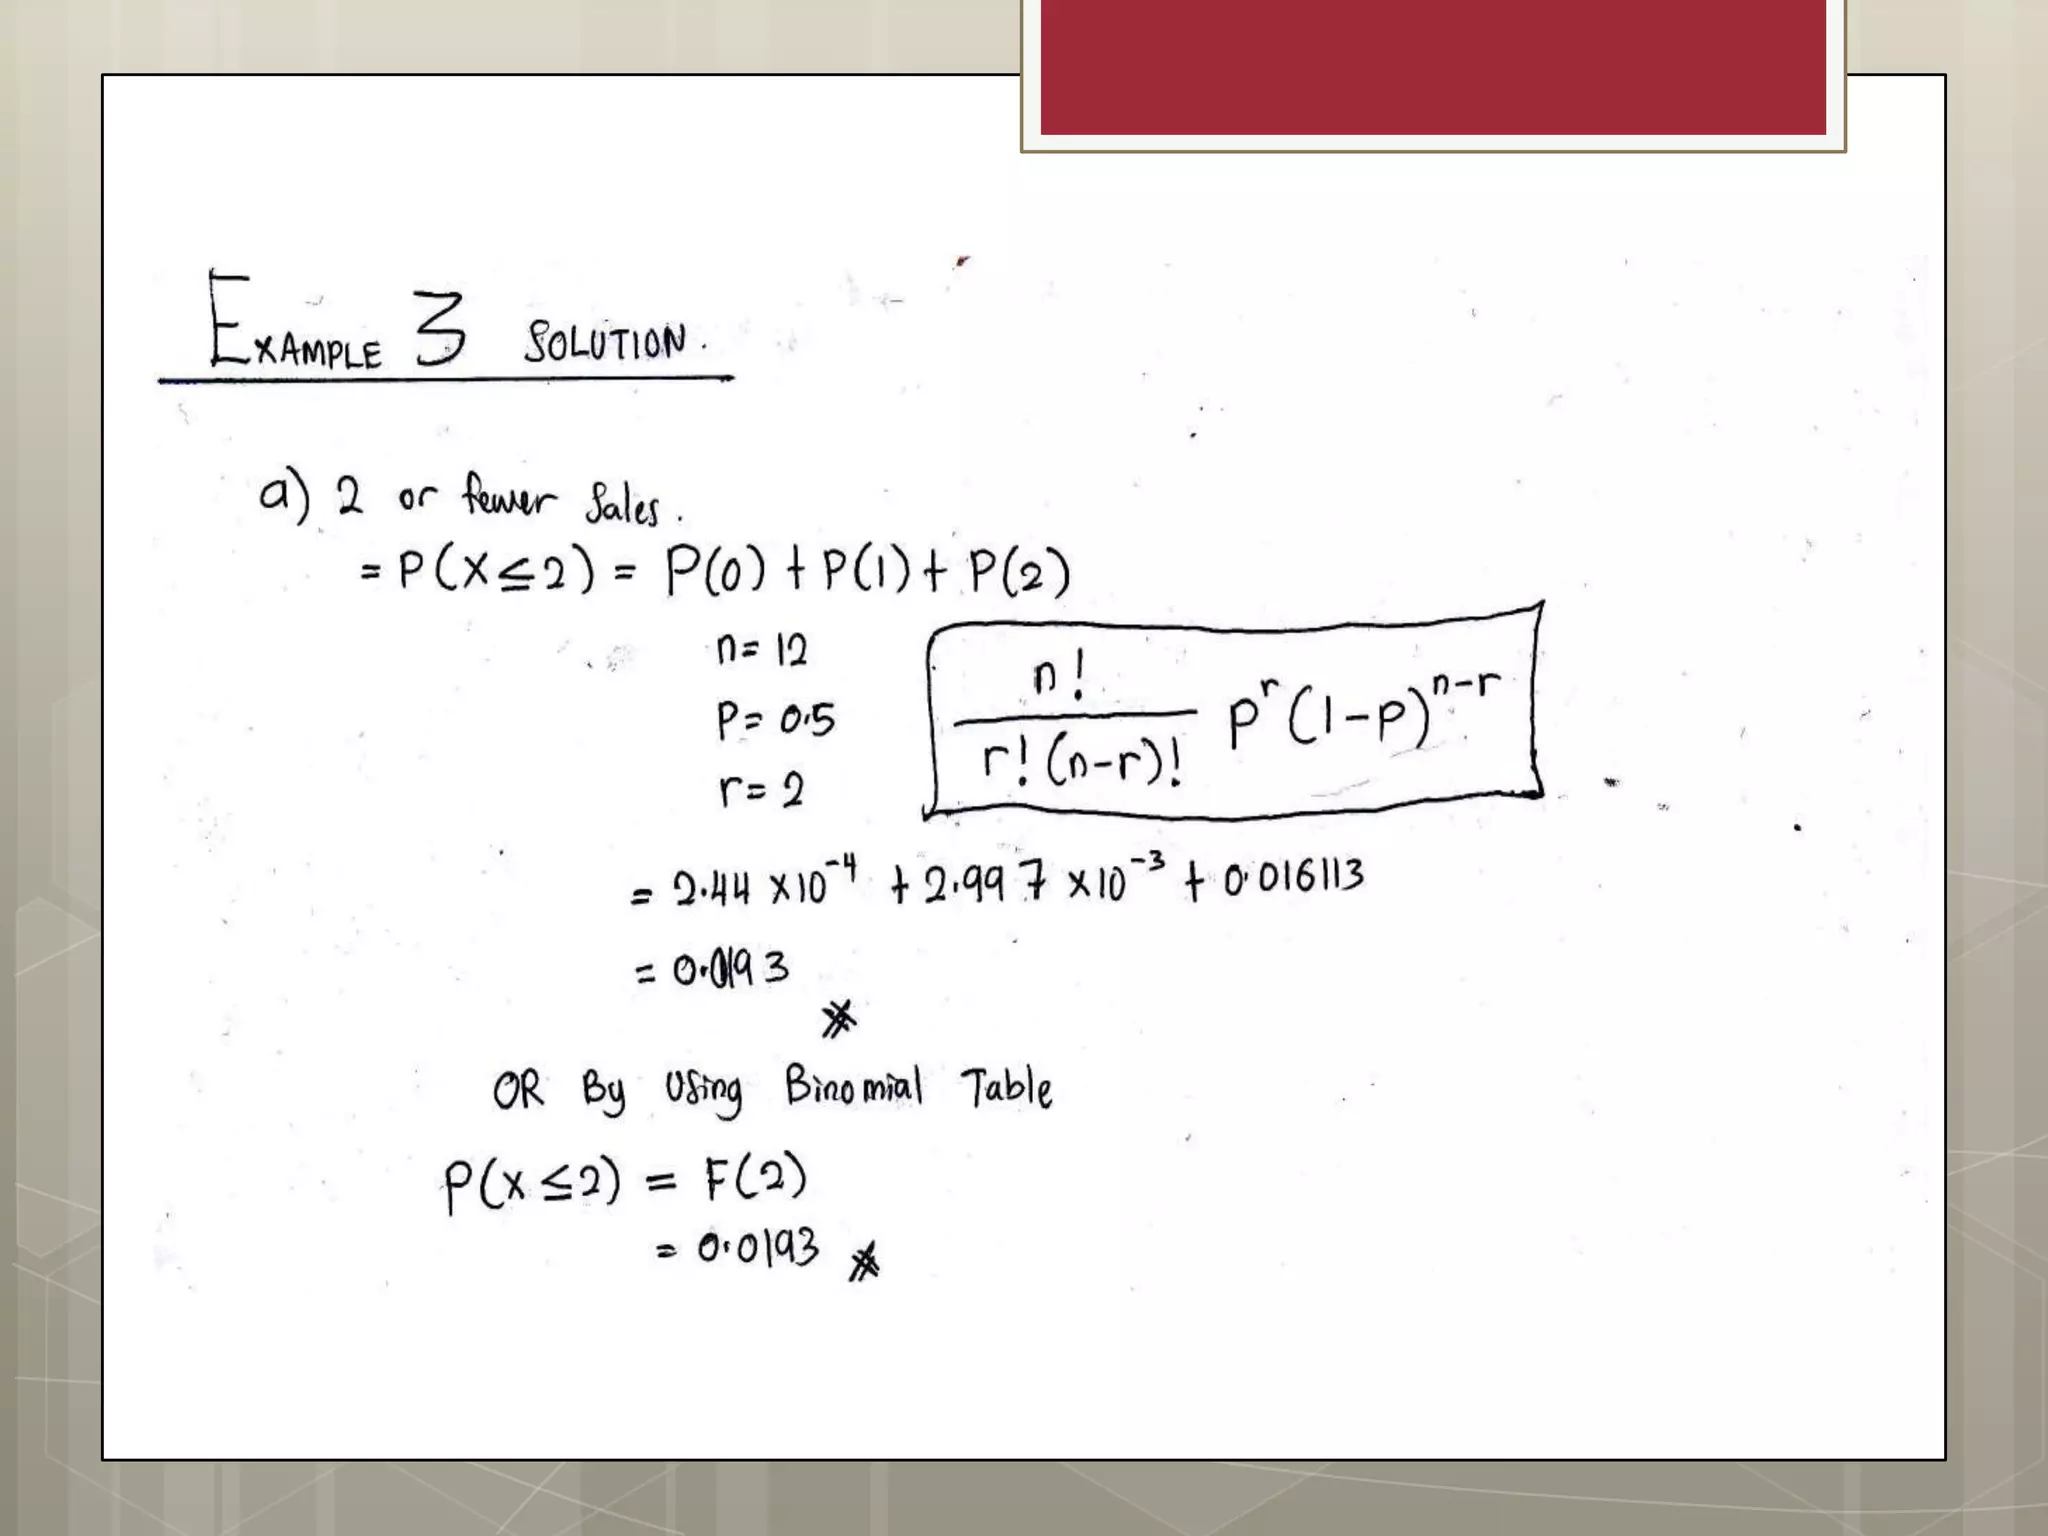 EXAMPLE 3 SOLUTION.
a) 2 or fewer Sales.
= P(X≤2) = P(0) + P(1) + P(2)
n = 12
P = 0.5
r = 2
n! / r!(n-r)! p^r (1-p)^n-r
= 2.44 x10^-4 + 2.997 x10^-3 + 0.016113
= 0.0193
OR By Using Binomial Table
P(x≤2) = F(2)
= 0.0193